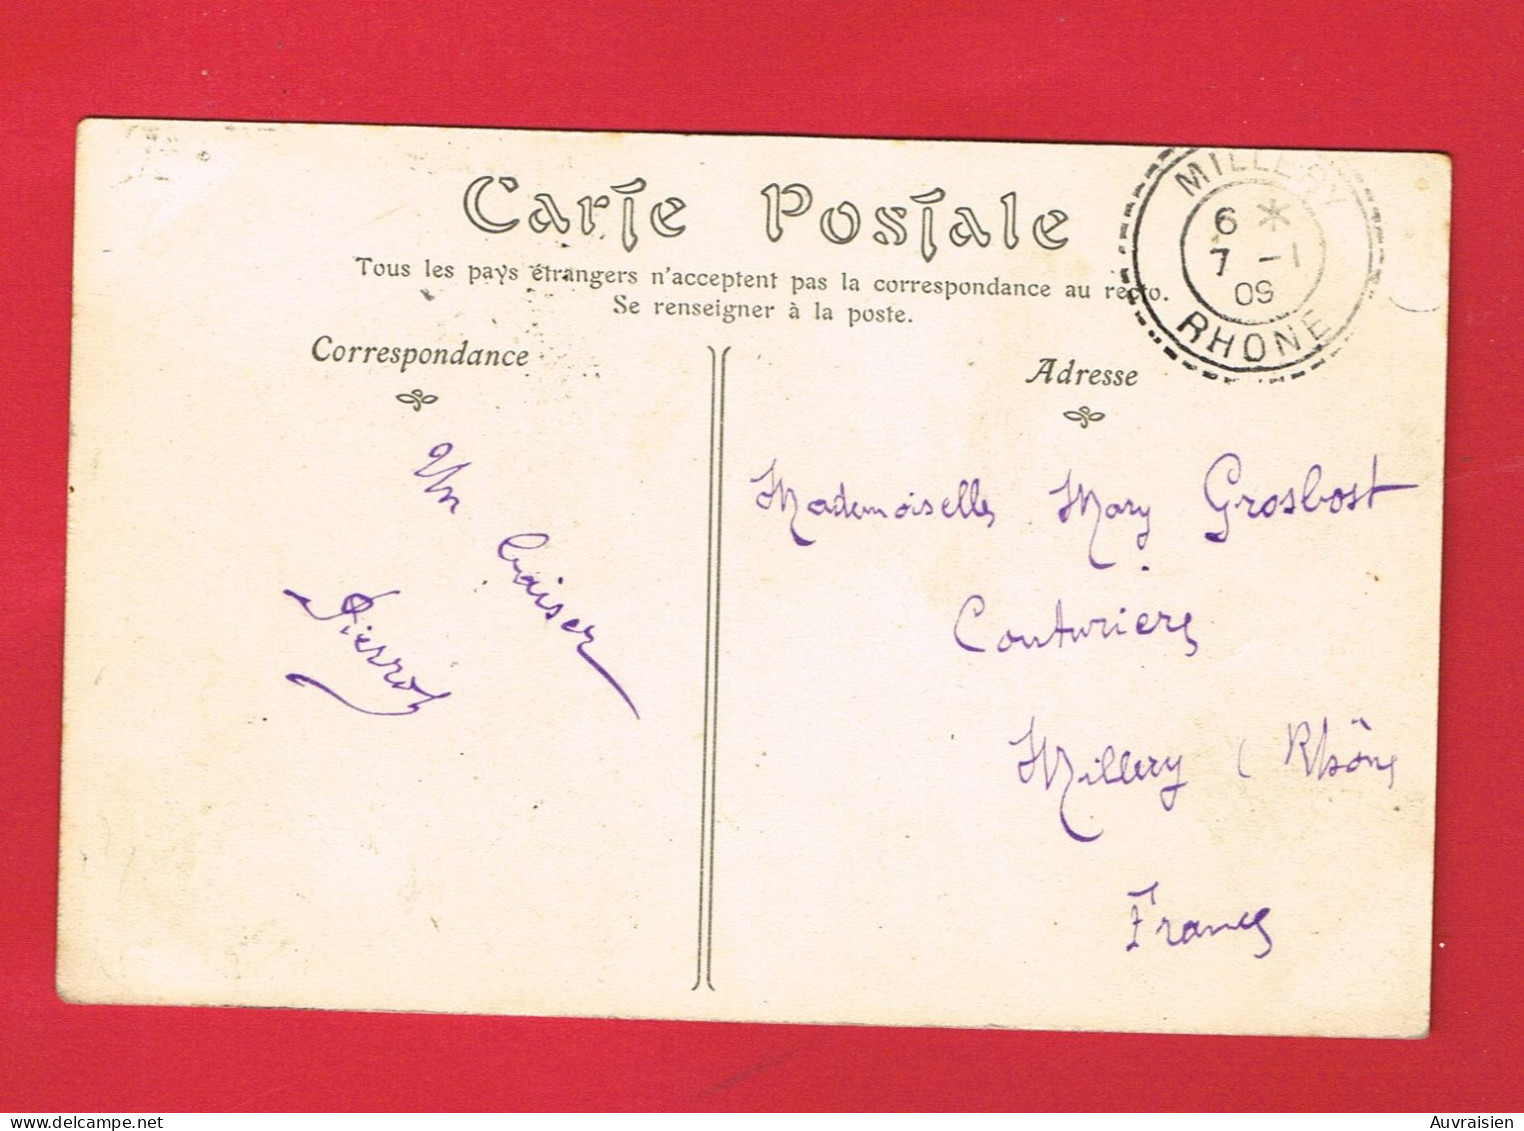 Carte Postale
Tous les pays étrangers n'acceptent pas la correspondance au recto.
Se renseigner à la poste.
MILLERY
6 *
7 -1
09
RHONE
Correspondance
Adresse
Un baiser
Pierrot
Mademoiselle Mary Grosbost
Couturière
Millery (Rhône
France
Auvraisien